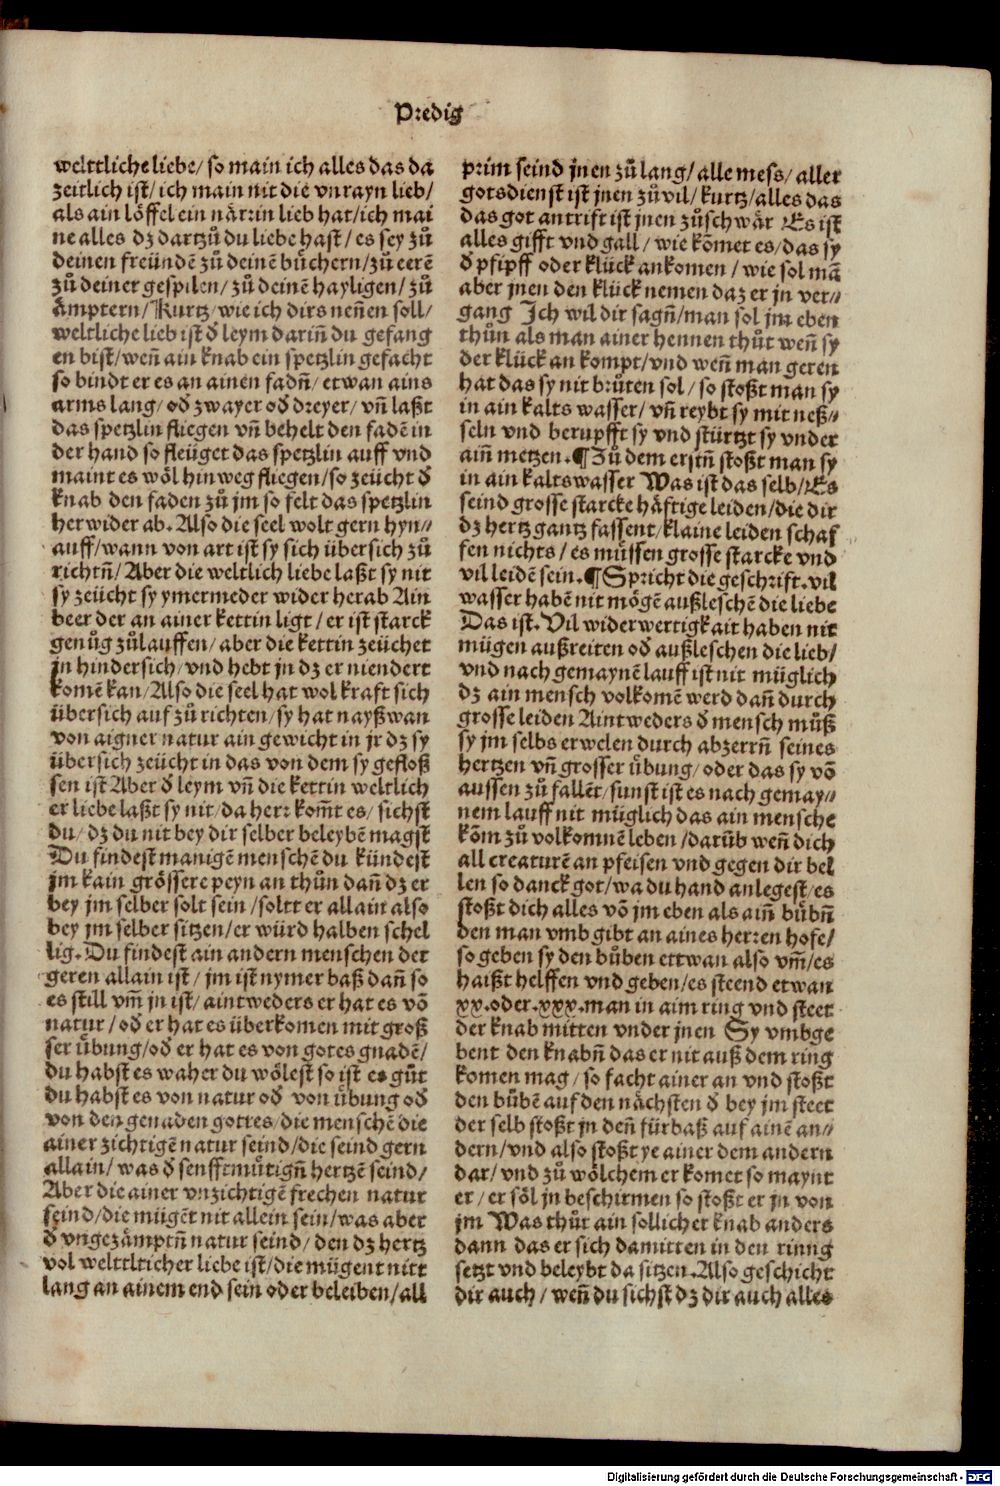 Predig
welttliche liebe/ so main ich alles das da
zeitlich ist/ ich main nit die vnrayn lieb/
als ain löffel ein närrin lieb hat/ich mai
ne alles dz dartzů du liebe hast/ es sey zů
deinen freündē zů deinē bůchern/zů eerē
zů deiner gespilen/ zů deinē hayligen/ zů
ämptern/ Kurtz/ wie ich dirs nen̄en soll/
weltliche lieb ist đ leym darin̄ du gefang
en bist/ wen̄ ain knab ein spetzlin gefacht
so bindt er es an ainen fadn̄/ etwan ains
arms lang/ ođ zwayer ođ dreyer/ vn̄ laßt
das spetzlin fliegen vn̄ behelt den fadē in
der hand so fleüget das spetzlin auff vnd
maint es wöl hinweg fliegen/so zeücht đ
knab den faden zů jm so felt das spetzlin
herwider ab. Also die seel wolt gern hyn//
auff/wann von art ist sy sich übersich zů
richtn̄/ Aber die weltlich liebe laßt sy nit
sy zeücht sy ymermeder wider herab Ain
beer der an ainer kettin ligt/ er ist starck
genůg zůlauffen/ aber die kettin zeüchet
jn hindersich/ vnd hebt jn dz er niendert
komē kan/Also die seel hat wol kraft sich
übersich auf zů richten/ sy hat nayßwan
von aigner natur ain gewicht in jr dz sy
übersich zeücht in das von dem sy gefloß
sen ist Aber đ leym vn̄ die kettin weltlich
er liebe laßt sy nit/ da herr kom̄t es/ sichst
du/ dz du nit bey dir selber beleybē magst
Du findest manigē menschē du kündest
jm kain grössere peyn an thůn dan̄ dz er
bey jm selber solt sein/ soltt er allain also
bey jm selber sitzen/er würd halben schel
lig. Du findest ain andern menschen der
geren allain ist/ jm ist nymer baß dan̄ so
es still vm̄ jn ist/ aintweders er hat es vō
natur/ ođ er hat es überkomen mit groß
ser übung/ođ er hat es von gotes gnadē/
du habst es waher du wölest so ist es gůt
du habst es von natur ođ von übung ođ
von den genaden gottes/die menschē die
ainer zichtigē natur seind/die seind gern
allain/ was đ senfftmůtign̄ hertzē seind/
Aber die ainer vnzichtigē frechen natur
seind/die mügēt nit allein sein/was aber
đ vngezämptn̄ natur seind/ den dz hertz
vol welttlticher liebe ist/die mügent nitt
lang an ainem end sein oder beleiben/all
prim seind jnen zů lang/ alle mess/ aller
gotsdienst ist jnen zů vil/ kurtz/alles das
das got antrift ist jnen zů schwär Es ist
alles gifft vnd gall/ wie kōmet es/das sy
đ pfipff oder klück ankomen/ wie sol mā
aber jnen den klück nemen daz er jn ver-
gang Ich wil dir sagn̄/man sol jm eben
thůn als man ainer hennen thůt wen̄ sy
der klück an kompt/vnd wen̄ man geren
hat das sy nit brůten sol/ so stoßt man sy
in ain kalts wasser/ vn̄ reybt sy mit neß//
seln vnd berupfft sy vnd stürtzt sy vnder
ain̄ metzen. ¶Zů dem erstn̄ stoßt man sy
in ain kaltswasser Was ist das selb/Es
seind grosse starcke häftige leiden/die dir
dz hertz gantz fassent/klaine leiden schaf
fen nichts/ es müssen grosse starcke vnd
vil leidē sein. ¶Spricht die geschrift. vil
wasser habē nit mögē außleschē die liebe
Das ist. Vil widerwertigkait haben nit
mügen außreiten ođ außleschen die lieb/
vnd nach gemaynē lauff ist nit müglich
dz ain mensch volkomē werd dan̄ durch
grosse leiden Aintweders đ mensch můß
sy jm selbs erwelen durch abzerrn̄ seines
hertzen vn̄ grosser übung/ oder das sy vō
aussen zů fallēt/ sunst ist es nach gemay//
nem lauff nit müglich das ain mensche
kōm zů volkomnē leben/darüb wen̄ dich
all creaturē an pfeisen vnd gegen dir bel
len so danck got/wa du hand anlegest/es
stoßt dich alles vō jm eben als ain̄ bůbn̄
den man vmb gibt an aines herren hofe/
so geben sy den bůben ettwan also vm̄/es
haißt helffen vnd geben/es steend etwan
xx. oder. xxx. man in aim ring vnd steet
der knab mitten vnder jnen Sy vmbge
bent den knabn̄ das er nit auß dem ring
komen mag/ so facht ainer an vnd stoßt
den bůbē auf den nächsten đ bey jm steet
der selb stoßt jn den̄ fürbaß auf ainē an//
dern/vnd also stoßt ye ainer dem andern
dar/ vnd zů wölchem er komet so maynt
er/ er söl jn beschirmen so stoßt er jn von
jm Was thůt ain sollicher knab anders
dann das er sich damitten in den rinng
setzt vnd beleybt da sitzen. Also geschicht
dir auch/ wen̄ du sichst dz dir auch alles
Digitalisierung gefördert durch die Deutsche Forschungsgemeinschaft - DFG